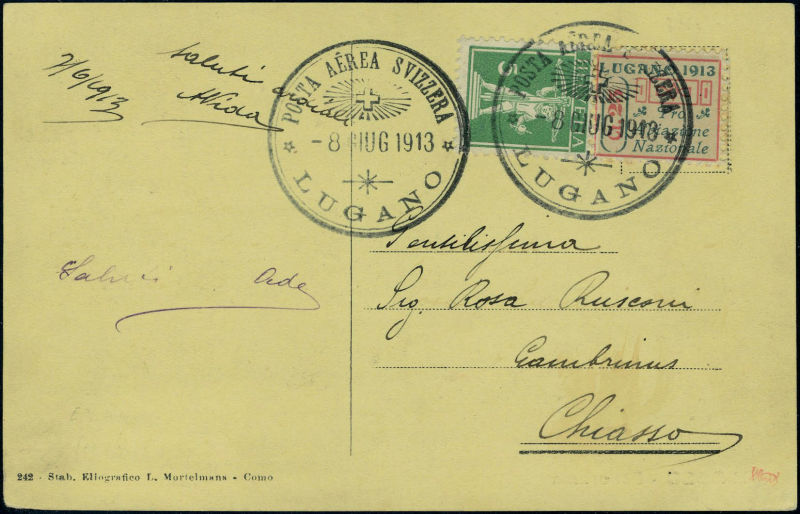 7/6/1913
Saluti cordiali
POSTA AÉREA SVIZZERA
- 8 GIUG 1913
LUGANO
5
POSTA AÉREA SVIZZERA
- 8 GIUG 1913
LUGANO
LUGANO 1913
Pro
Aviazione
Nazionale
Gentilissima
Sig. Rosa Rusconi
Gambrinus
Chiasso
Saluti
242 - Stab. Eliografico L. Mortelmans - Como